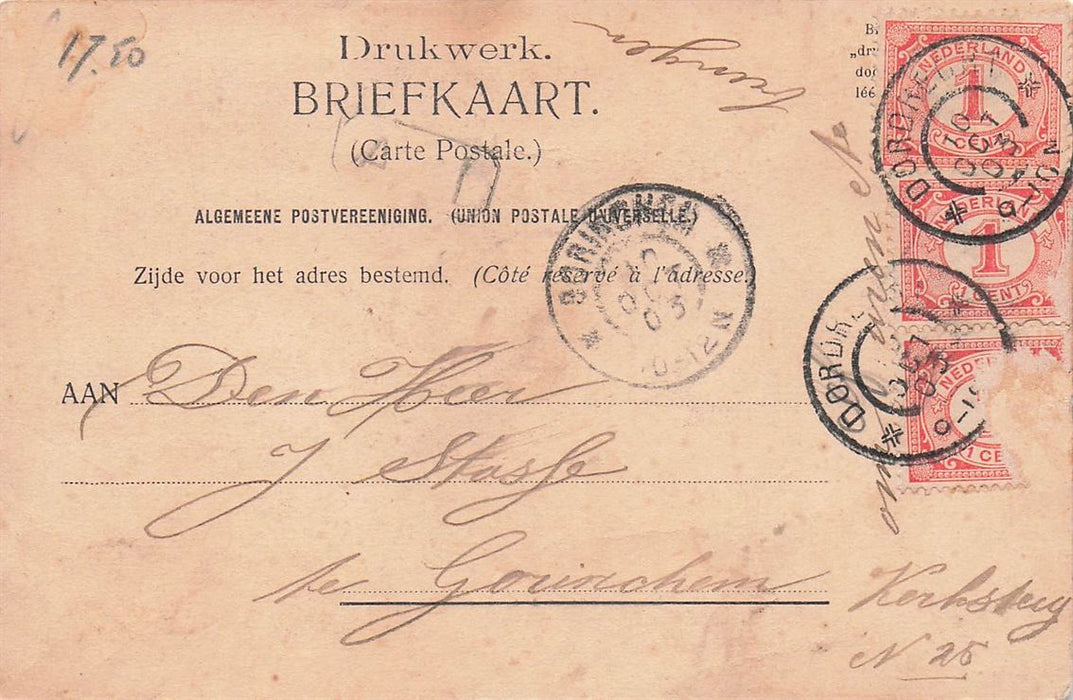 17.50
Drukwerk.
BRIEFKAART.
(Carte Postale.)
ALGEMEENE POSTVEREENIGING. (UNION POSTALE UNIVERSELLE.)
Zijde voor het adres bestemd. (Côté réservé à l'adresse.)
AAN Den Heer
J Stasse
te Gorinchem
Kerksteeg
N 25
morgen
om
GORINCHEM
10-12 N
NEDERLAND
1
1 CENT
DORDRECHT
10 OCT 03
NEDERLAND
1
1 CENT
DORDR
NEDE
1 CE